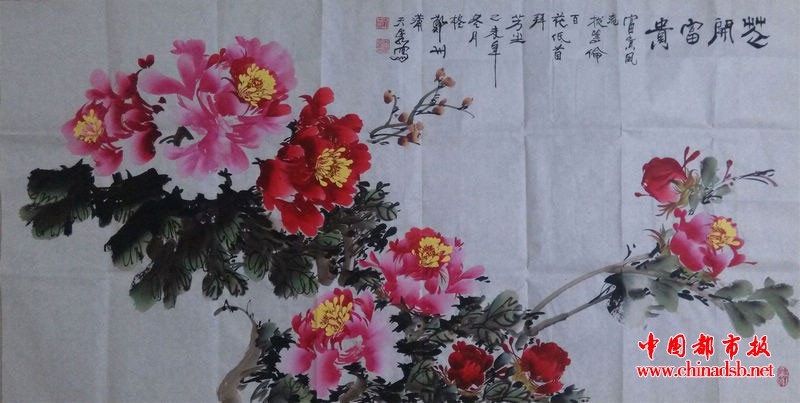 花開富貴
富貴風
流
拔等倫
百
花低首
拜
芳尘
乙未年
冬月
鄭州
中国都市报
www.chinadsb.net